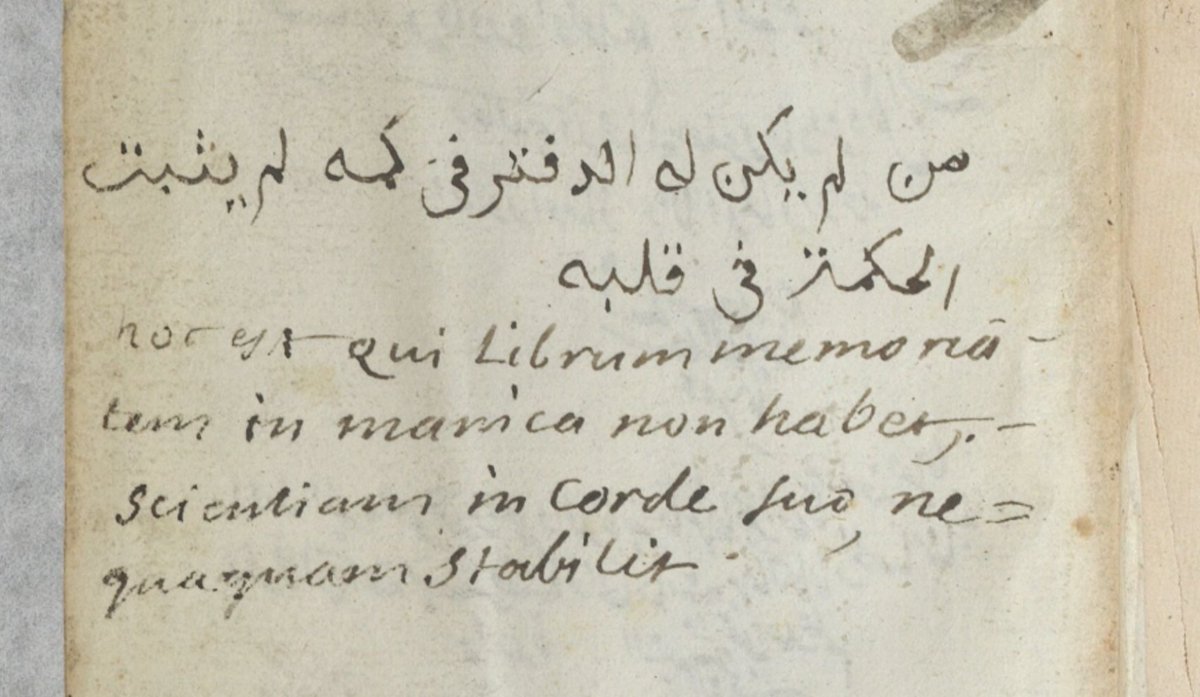 من لم يكن له الدفتر فى كمه لم يثبت
الحكمة فى قلبه
hoc est qui Librum memoriā-
tem in manica non habet, -
Scientiam in Corde suo, ne=
quaquam stabilit